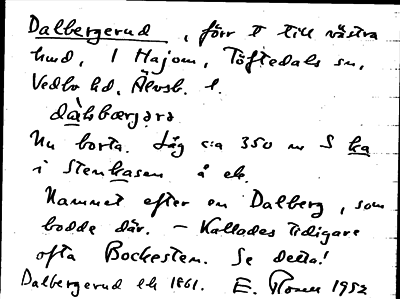 Dalbergerud, förr tt till västra
hmd, 1 Hajom, Töftedals sn,
Vedbo hd, Älvsb. l.
dàlsbærjərə
Nu borta. Låg c:a 350 m S ka
i Stenkasen å ek.
Namnet efter en Dalberg, som
bodde där. – Kallades tidigare
ofta Bockesten. Se detta!
Dalbergerud ek 1861. E. 1952